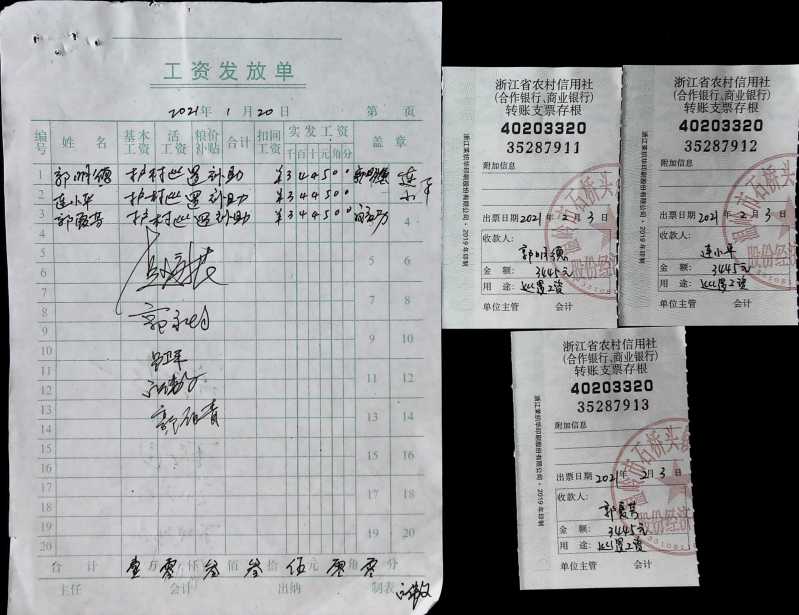 工资发放单
2021年 1月 20日 第 页
编号 姓名 基本工资 活工资 粮价补贴 合计 扣回工资 实发工资 盖章
千 百 十 元 角 分
1 郭明德 护村巡逻补助 ¥344500
2 连小平 护村巡逻补助 ¥344500 连小平
3 护村巡逻补助 ¥344500
4 4
5 5 6
6
7 7 8
8
9 9 10
10
11 11 12
12
13 13 14
14
15 15 16
16
17 17 18
18
19 19 20
20
合计 壹万零仟叁佰叁拾伍元零角零分
主任 会计 出纳 制表
浙江省农村信用社
(合作银行、商业银行)
转账支票存根
40203320
35287911
附加信息
出票日期 2021年 2月 3日
收款人:
郭明德
金额: 3445元
用途: 巡逻工资
单位主管 会计
浙江省农村信用社
(合作银行、商业银行)
转账支票存根
40203320
35287912
附加信息
出票日期 2021年 2月 3日
收款人:
连小平
金额: 3445元
用途: 巡逻工资
单位主管 会计
浙江省农村信用社
(合作银行、商业银行)
转账支票存根
40203320
35287913
附加信息
出票日期 2021年 2月 3日
收款人:
金额: 3445元
用途: 巡逻工资
单位主管 会计